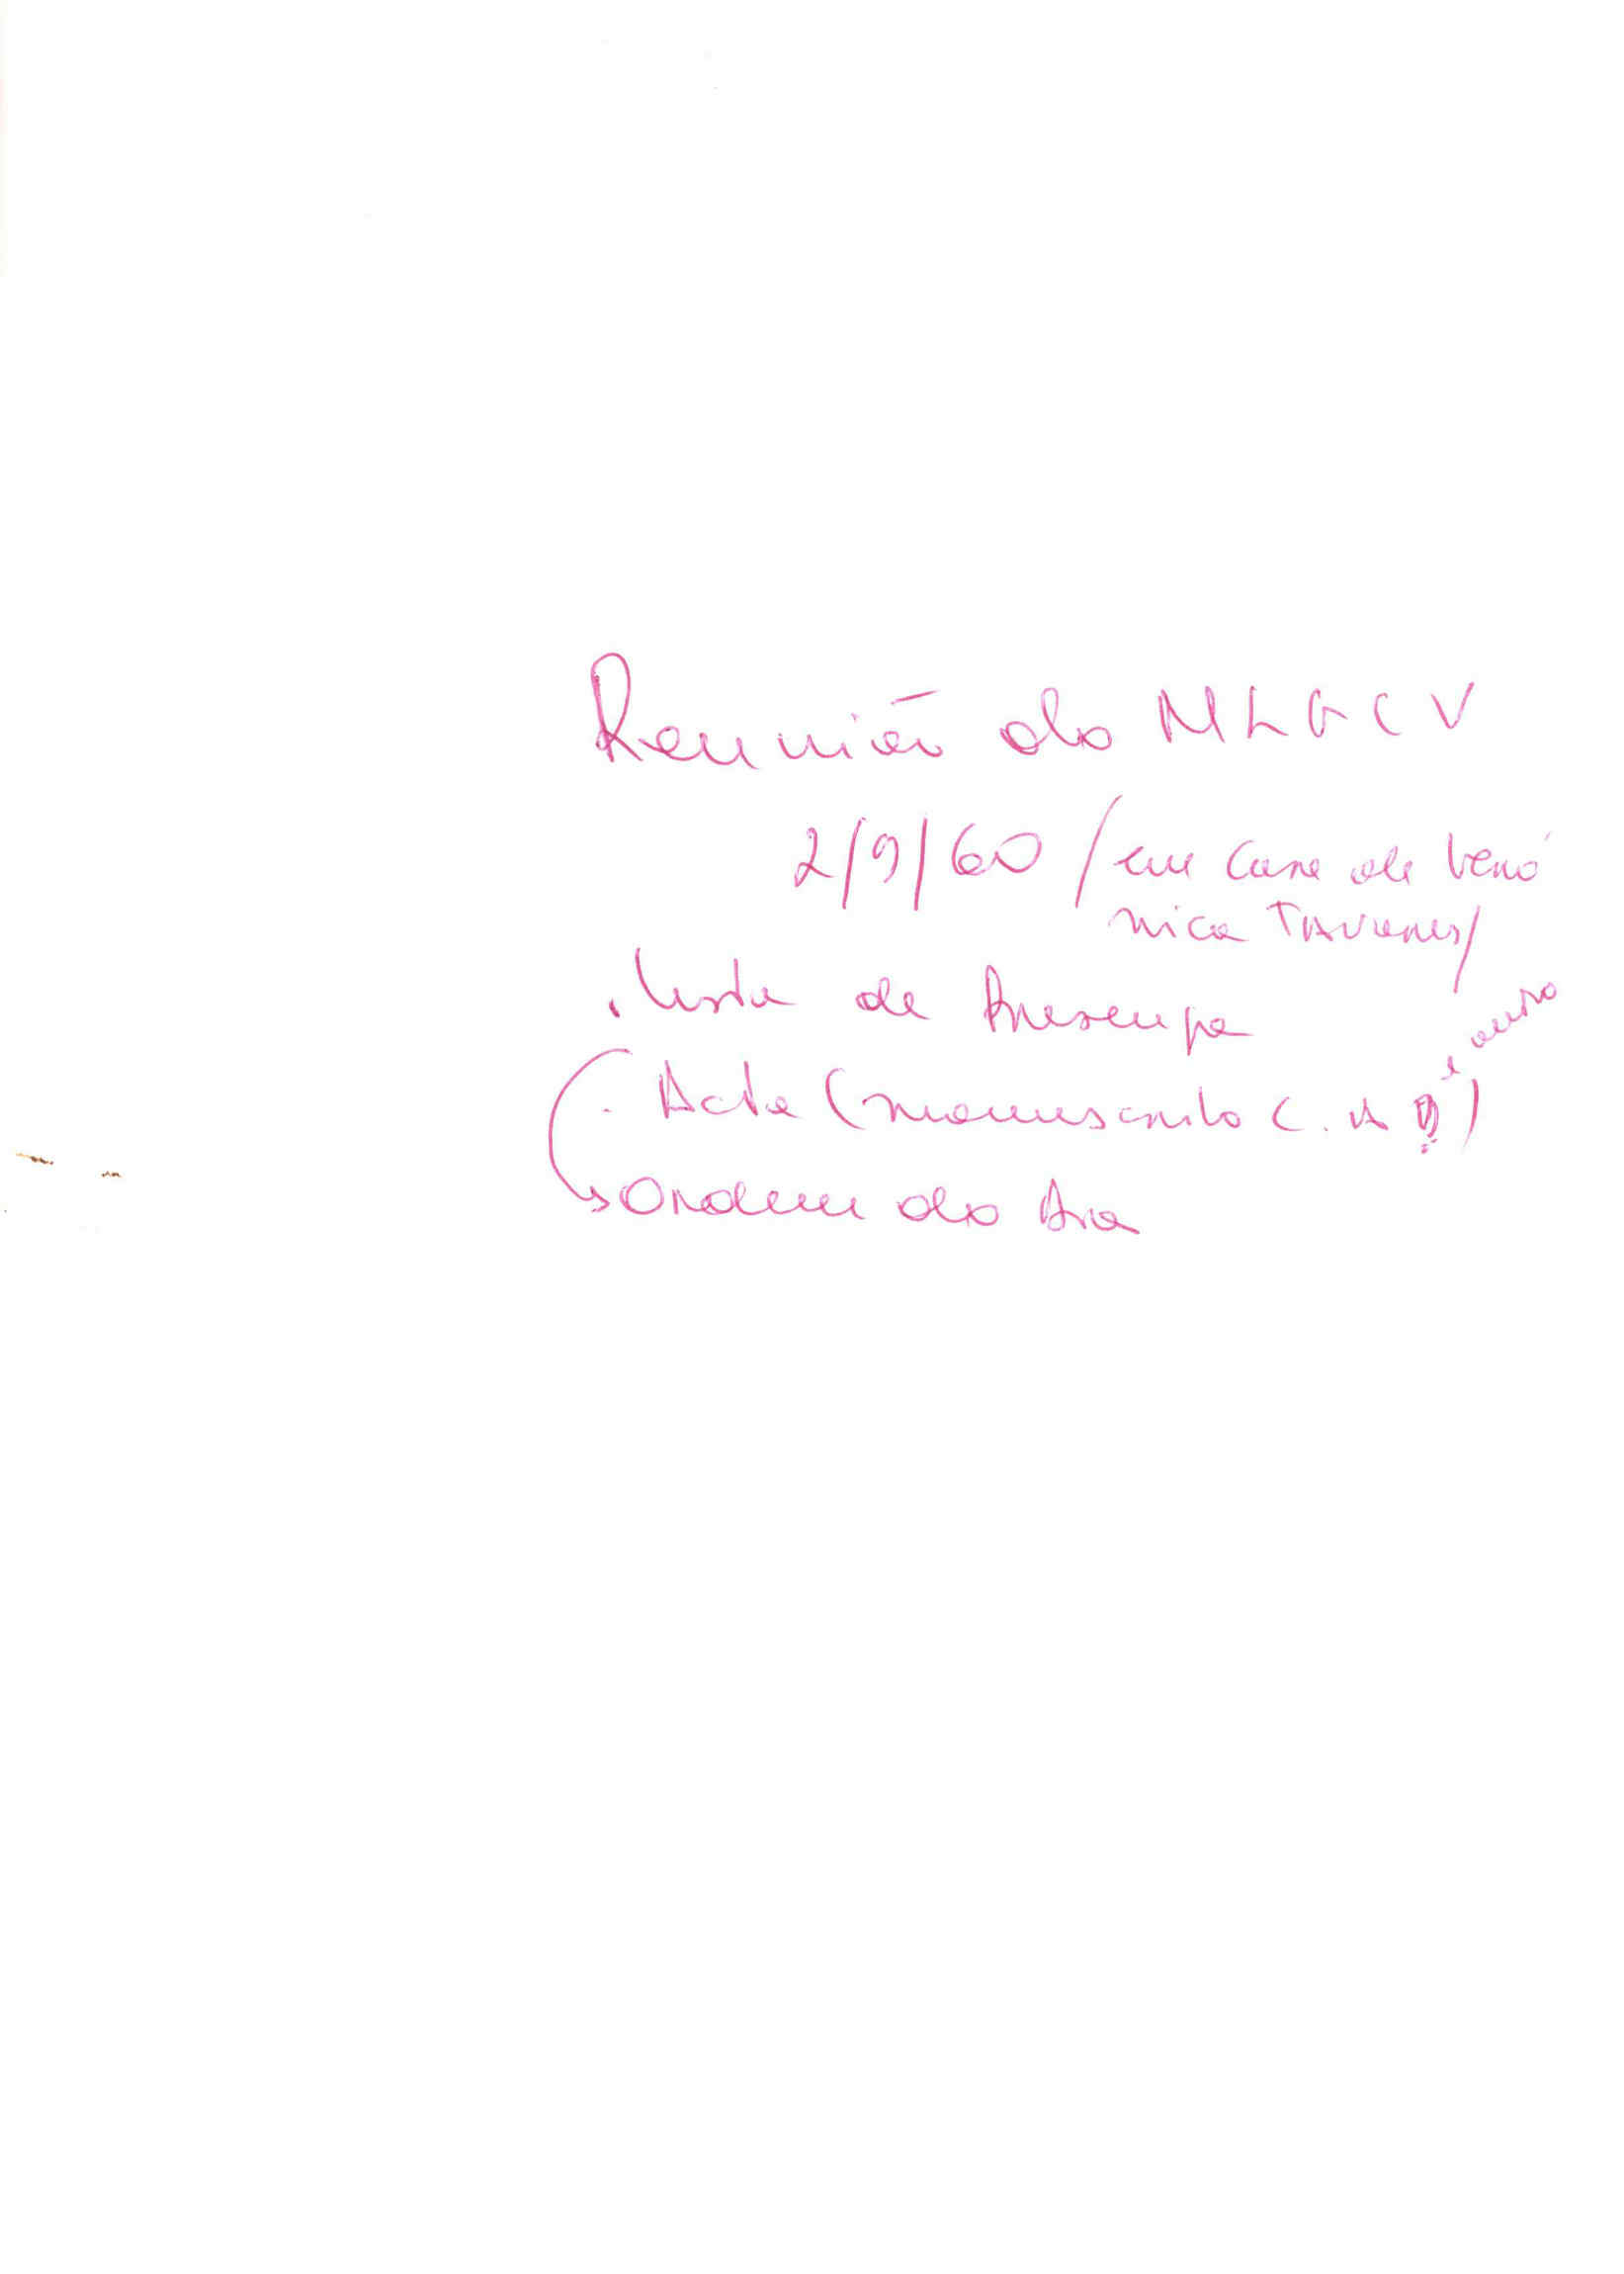 Reunião do MLGCV
2/9/60 / em casa de Veró
nica Tavares/
. Lista de Presença
. Acta (manuscrito C. A e outro)
Ordem do dia